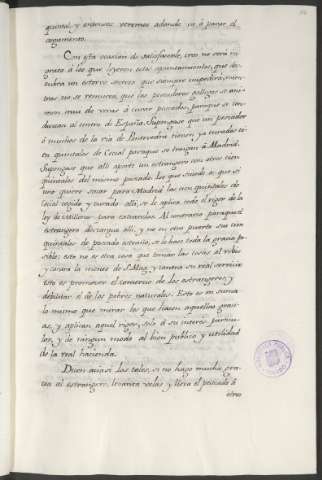 quintal, y entonces veremos adonde va à parar el
argumento.
Con esta ocasion de satisfacerle, creo no será in
grato à los que leyeren estos apuntamientos, que des
cubra un estorvo secreto que siempre impedirá, mien
tras no se remueva, que los pescadores gallegos se ani
men mui de veras à curar pescados, para que se con
duzcan al centro de España. Supongase que un pescador
ó muchos de la ria de Pontevedra tienen ya curados cien
to quintales de Cecial para que se traigan à Madrid.
Supongase que alli aportò un estrangero con otros cien
quintales del mismo pescado. Lo que sucede es, que si
uno quiere sacar para Madrid los cien quintales de
Cecial cogido y curado alli, se le aplica todo el rigor de la
ley de castillos para extraerlos. Al contrario para que el
estrangero descargue alli, y no en otro puerto sus cien
quintales de pescado extraño, se le hace toda la gracia po
sible; esto no es otra cosa que tomar las cosas al rebés
y contra la mente de S. Mag. y contra su real servicio.
Esto es promover el comercio de los estrangeros, y
debilitar el de los pobres naturales. Esto es en suma
lo mismo que mirar los que hacen aquellas graci
as, y aplican aquel rigor, solo à su interés particu
lar, y de ningun modo al bien publico y utilidad
de la real hacienda.
Dicen quiza los tales, si no hago mucha gra
cia al estrangero, levanta velas, y lleva el pescado à
otro